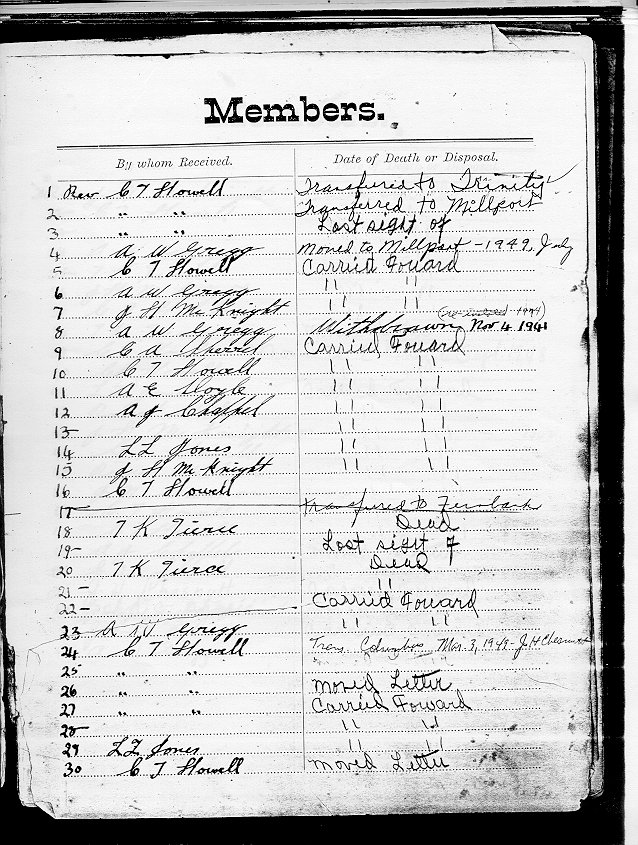 Members.
By whom Received. Date of Death or Disposal.
1 Rev C T Howell Transfured to Trinity
2 " " Transferred to Millport
3 " " Lost sight of
4 A W Gregg Moved to Millport - 1949, July
5 C T Howell Carried Foward
6 A W Gregg " "
7 J H McKnight " "
8 A W Gregg Withdrawn Nov 4 1941
9 C A Carried Foward
10 C T Howell " "
11 A E Doyle " "
12 A J Chappel " "
13 " "
14 L L Jones " "
15 J H McKnight " "
16 C T Howell
17 Transfured to Fernbank
18 T K Tierce Dead
19 Lost sight of
20 T K Tierce Dead
21 " "
22 Carried Foward
23 A W Gregg " "
24 C T Howell Trans. Columbus Mar. 3, 1948 - J. H.
25 " "
26 " " Moved Letter
27 " " Carried Foward
28 " "
29 L L Jones " "
30 C T Howell Moved Letter